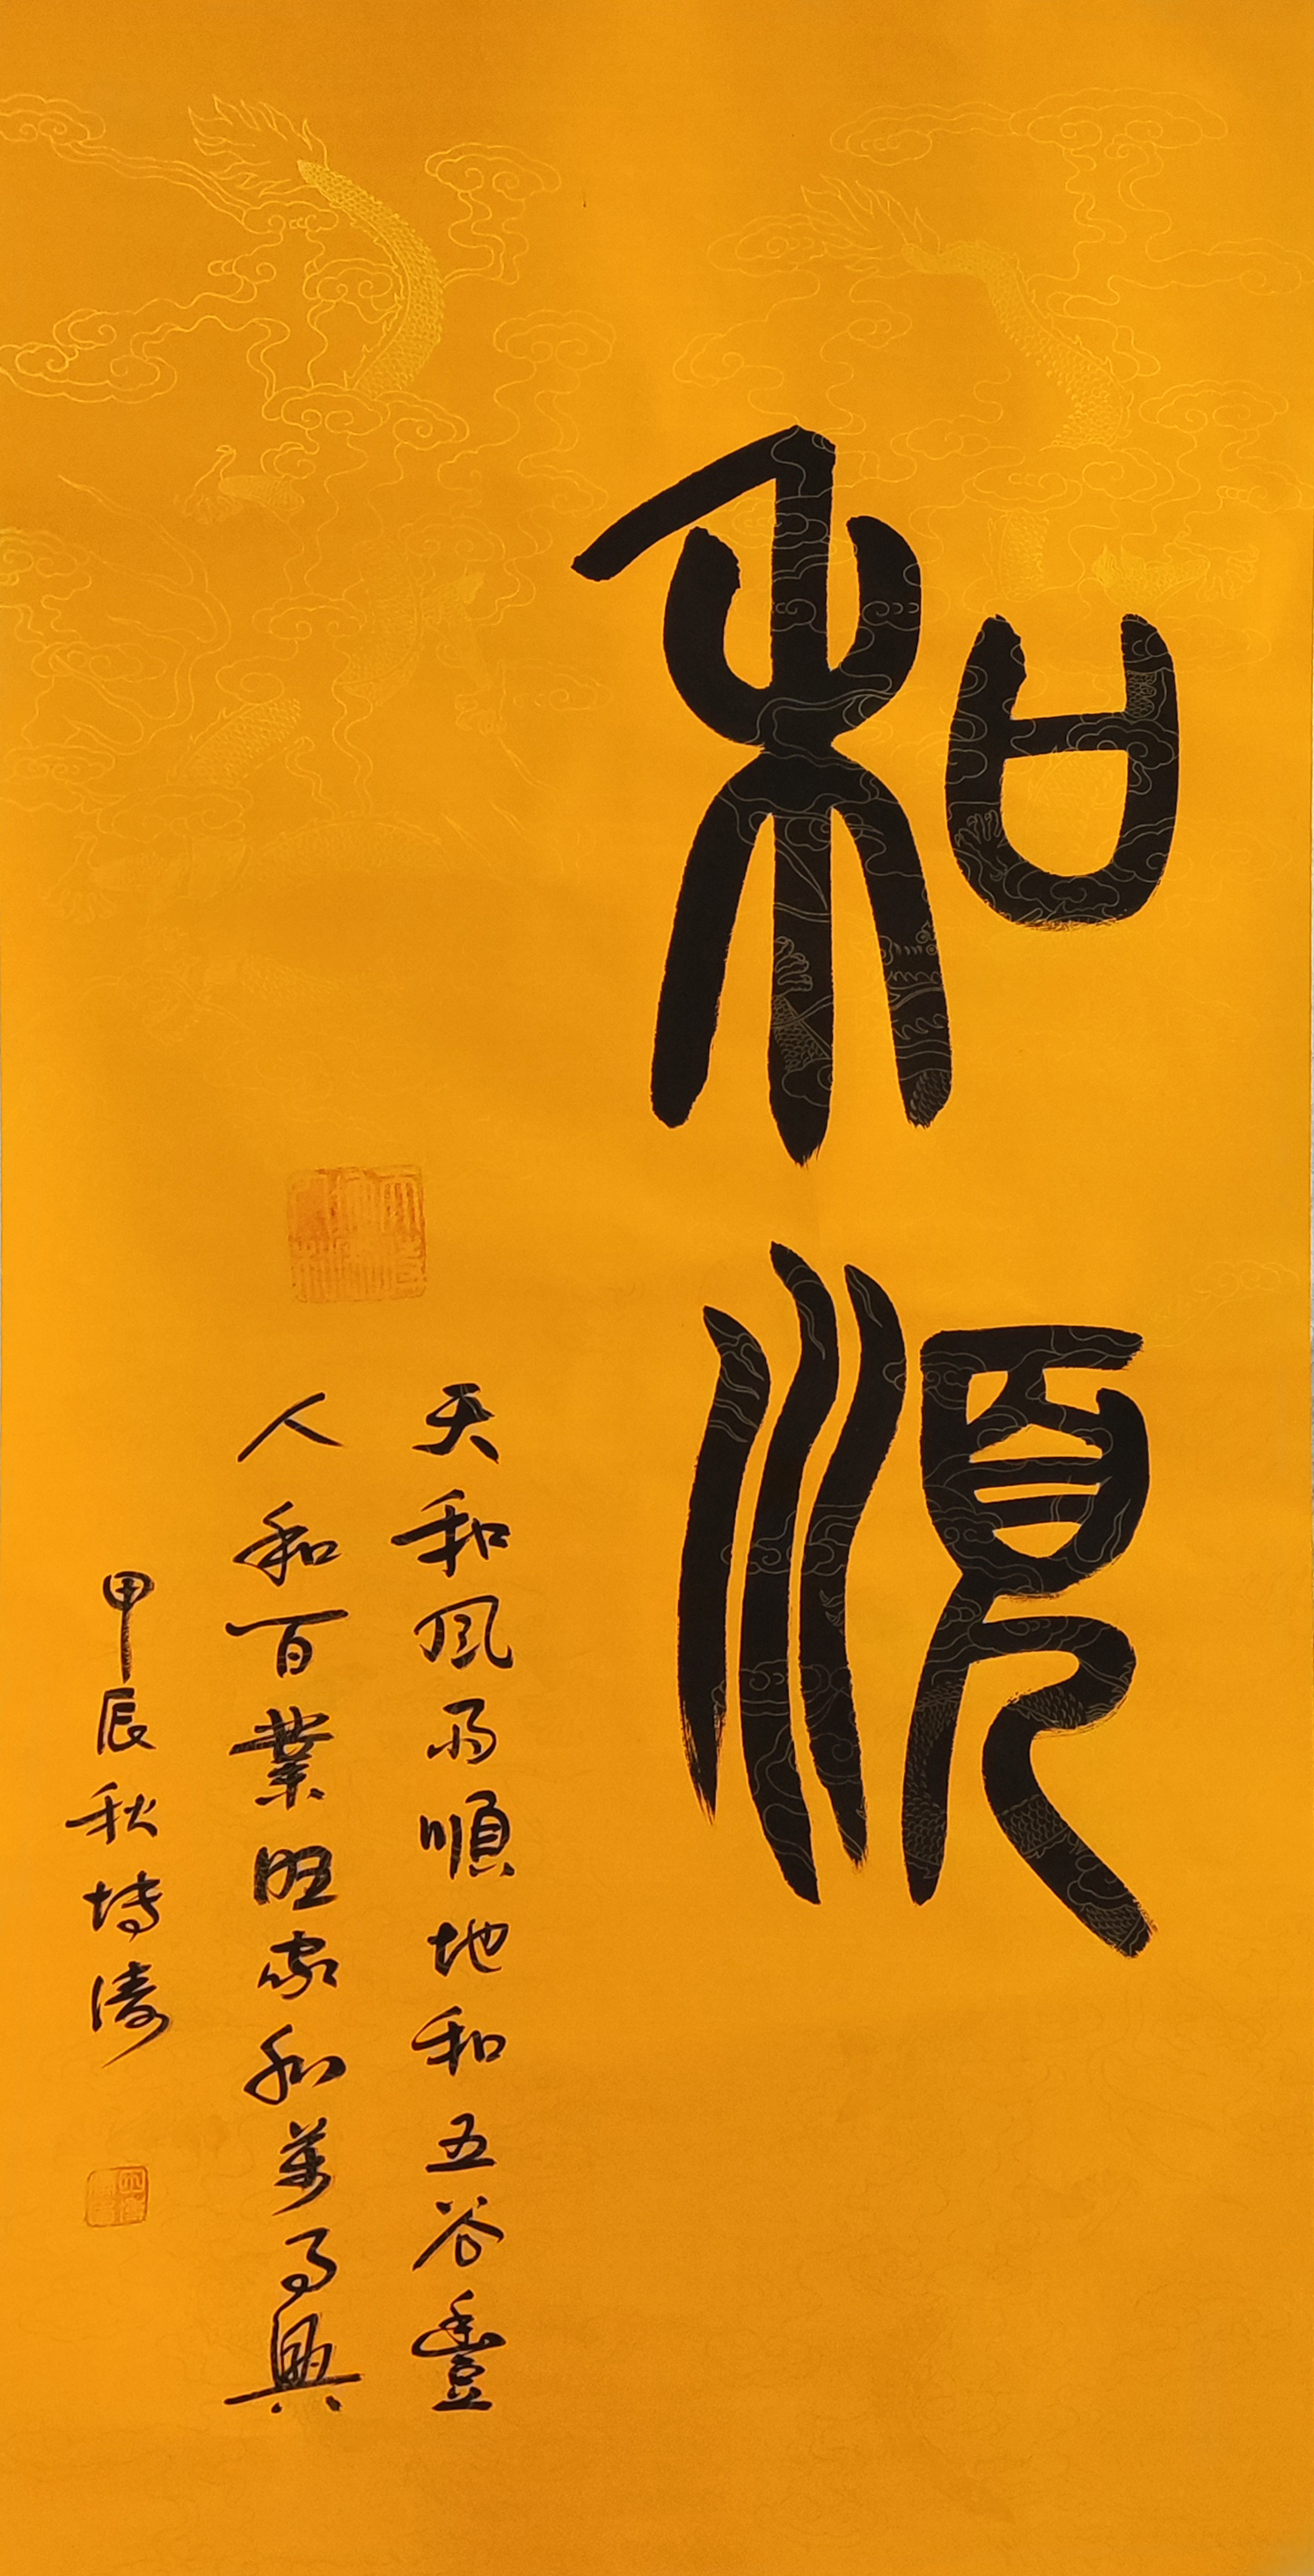 和順
天和風雨順地和五谷豐
人和百業旺家和萬事興
甲辰秋博濤